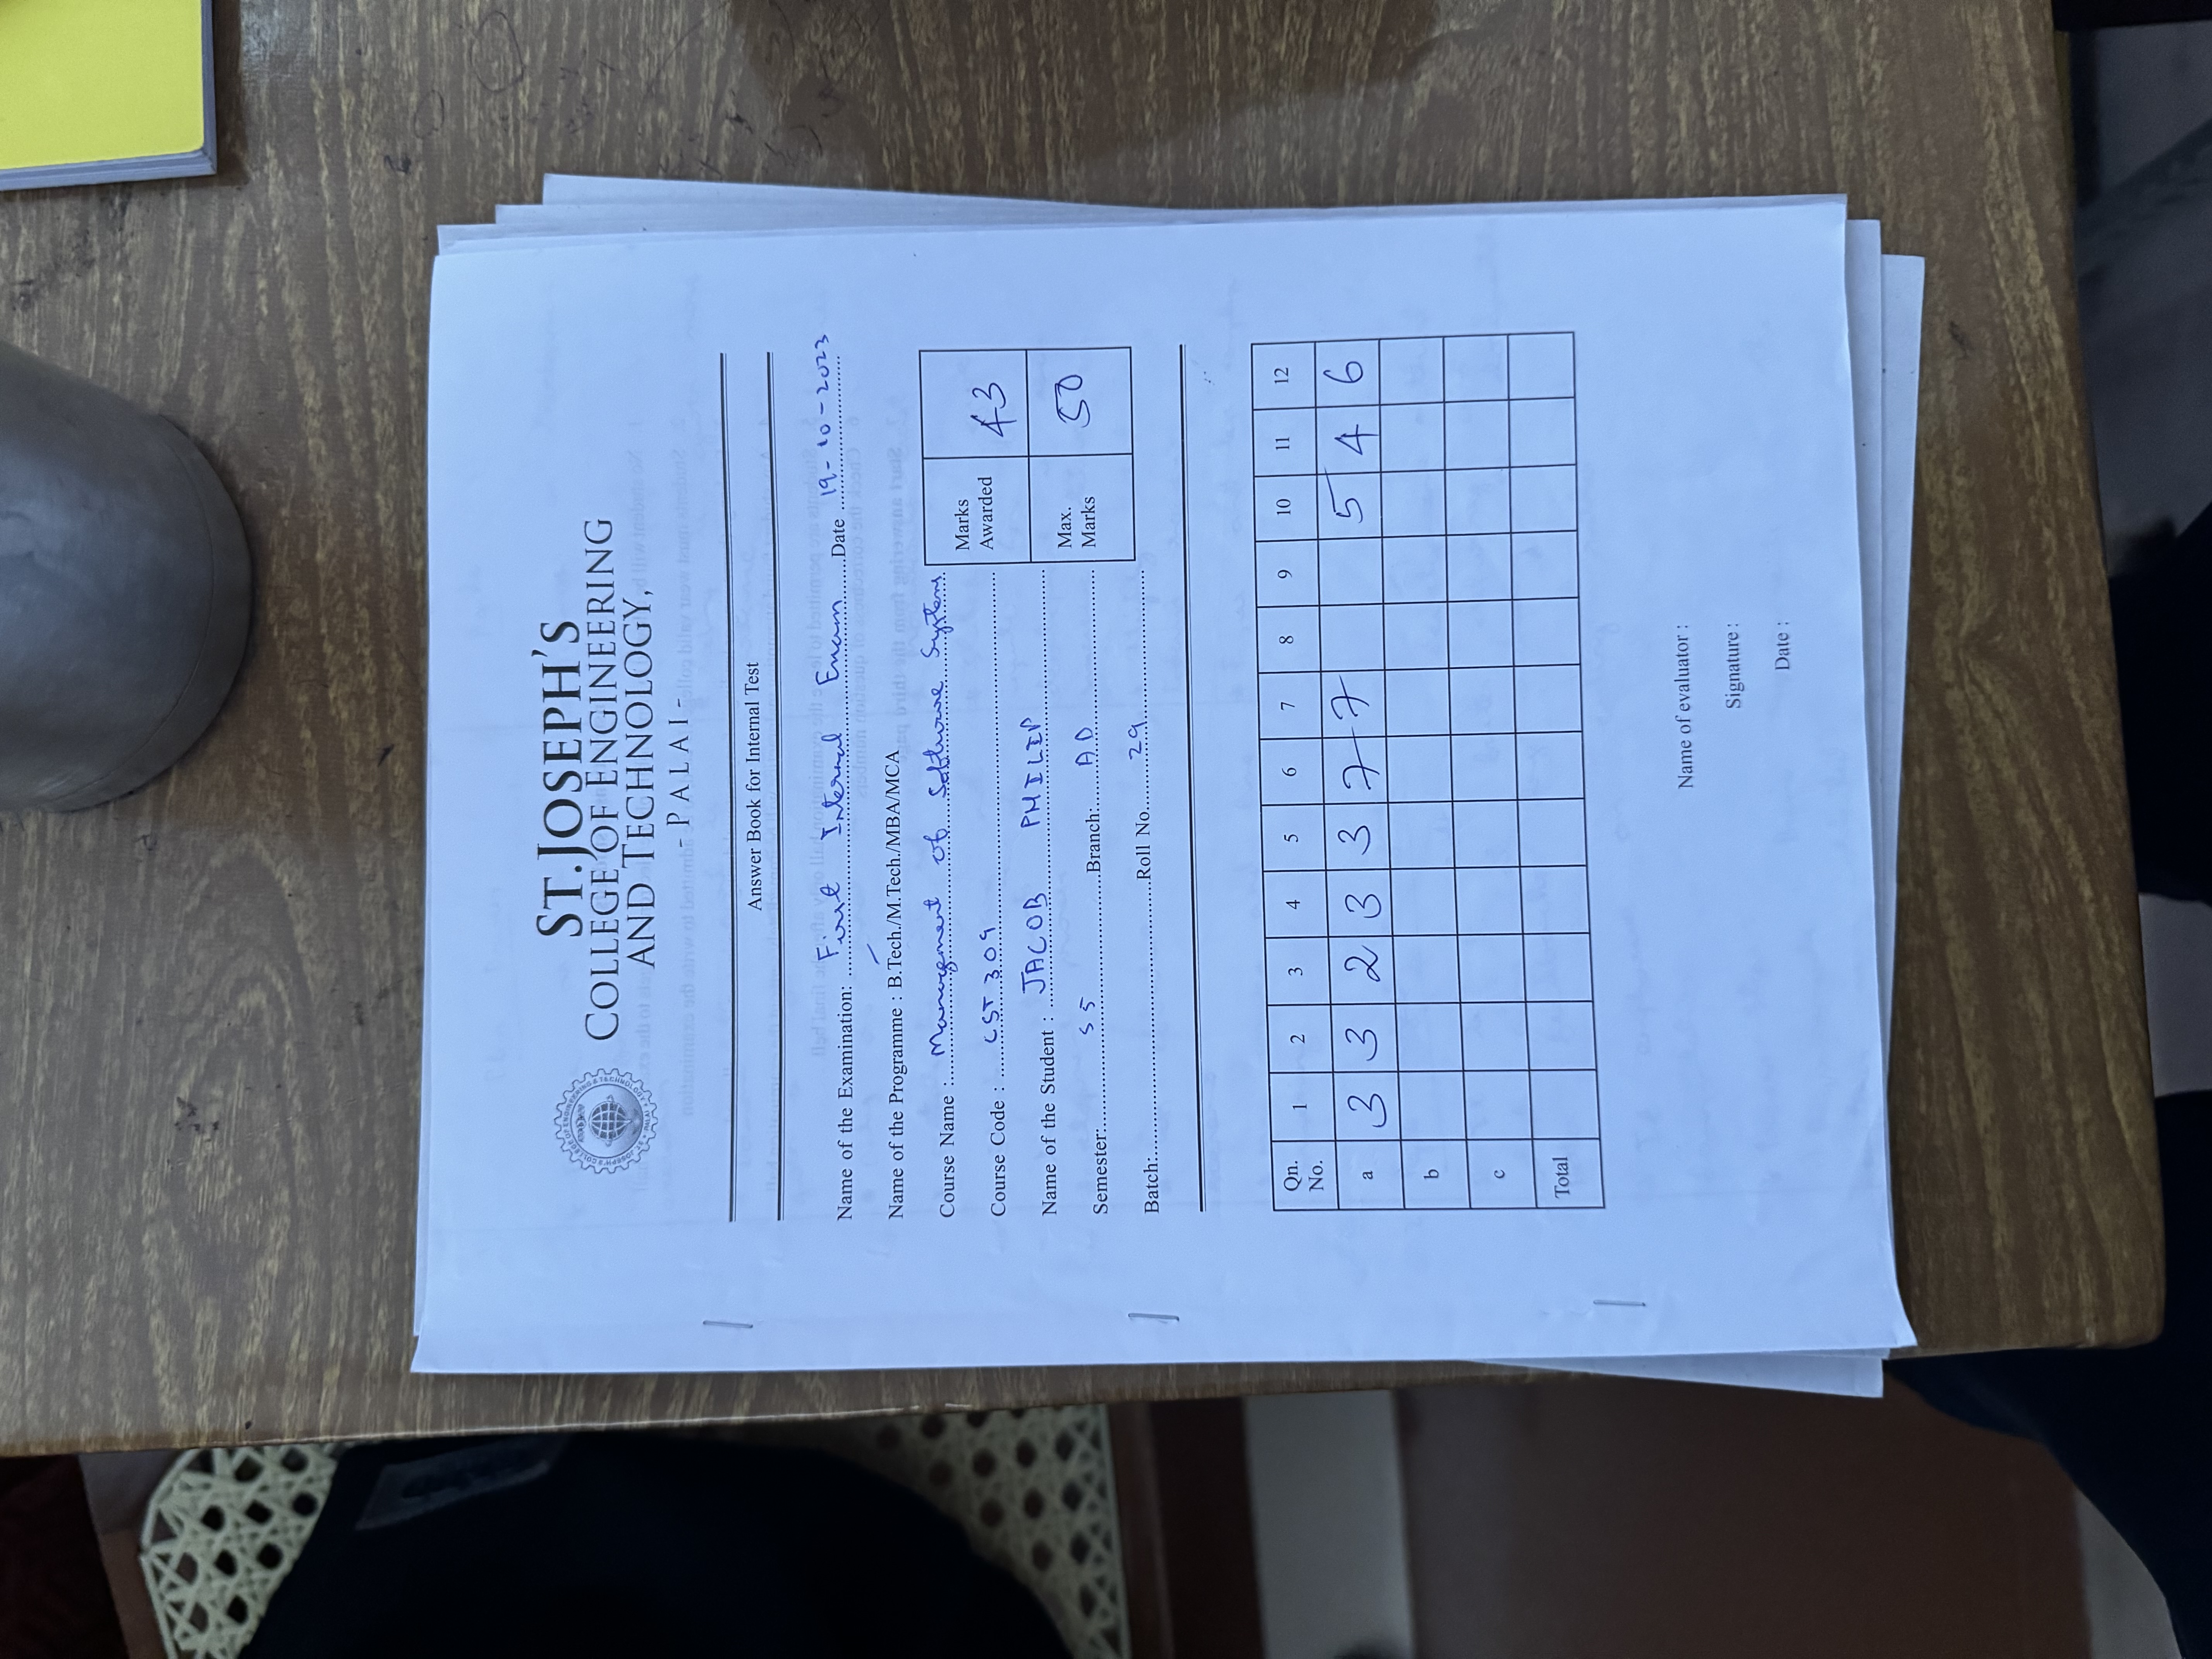 ST.JOSEPH'S
COLLEGE OF ENGINEERING
AND TECHNOLOGY,
- PALAI -
Answer Book for Internal Test
Name of the Examination: First Internal Exam Date 19-10-2023
Name of the Programme : B.Tech./M.Tech./MBA/MCA
Course Name : Management of Software Systems
Course Code : CST 309
Name of the Student : JACOB PHILIP
Semester: S5 Branch: AD
Batch: Roll No. 29
Marks Awarded 43
Max. Marks 50
Qn. No. 1 2 3 4 5 6 7 8 9 10 11 12
a 3 3 2 3 3 7 7 5 4 6
b
c
Total
Name of evaluator :
Signature :
Date :